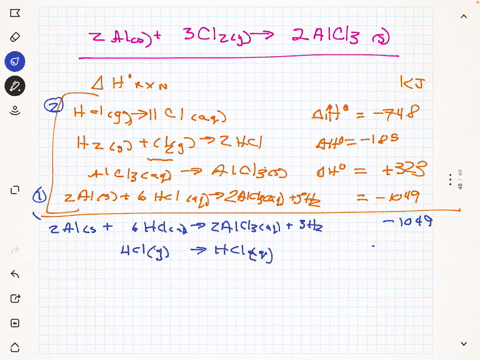 2 Al(s) + 3Cl2(g) → 2 AlCl3 (s)
Δ H° rxn KJ
② HCl(g) → HCl (aq) ΔH° = -748
H2(g) + Cl2(g) → 2 HCl ΔH° = -185
AlCl3(aq) → AlCl3(s) ΔH° = +323
① 2Al(s) + 6 HCl(aq) → 2AlCl3(aq) + 3H2 = -1049
2 Al(s + 6 HCl(aq) → 2AlCl3(aq) + 3H2 -1049
HCl(g) → HCl(aq)